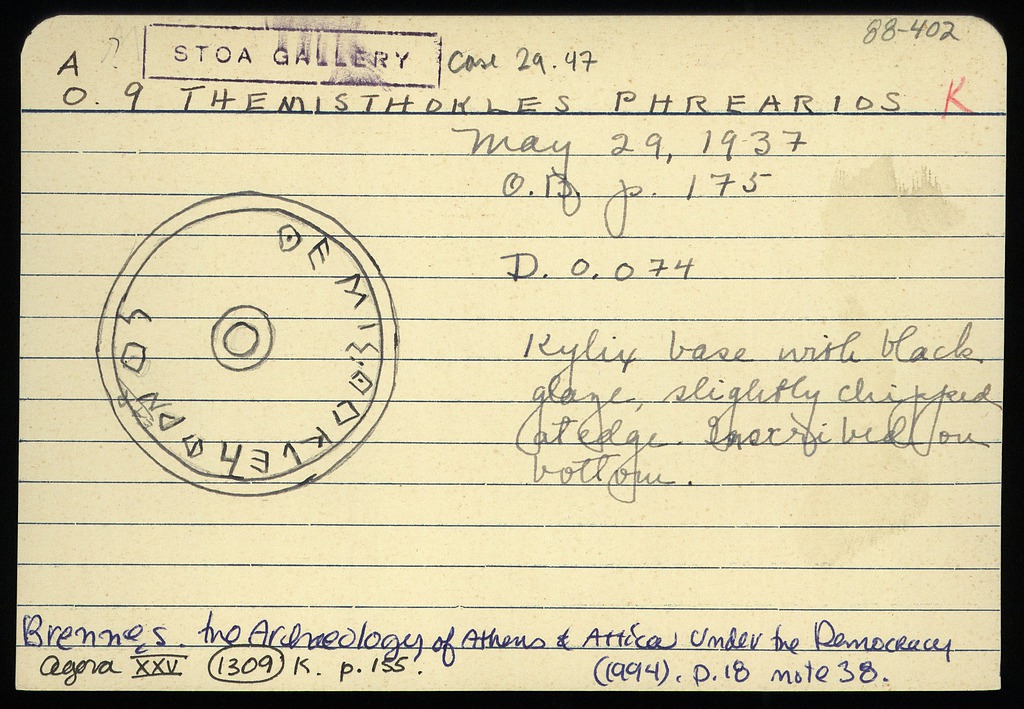 88-402
A ? STOA GALLERY Case 29.47
O. 9 THEMISTHOKLES PHREARIOS K
May 29, 1937
O.D. p. 175
D. 0.074
Kylix base with black
glaze, slightly chipped
at edge. Inscribed on
bottom.
Brennes. the Archaeology of Athens & Attica Under the Democracy
(1994). p.18 note 38.
Agora XXV (1309) K. p. 155.